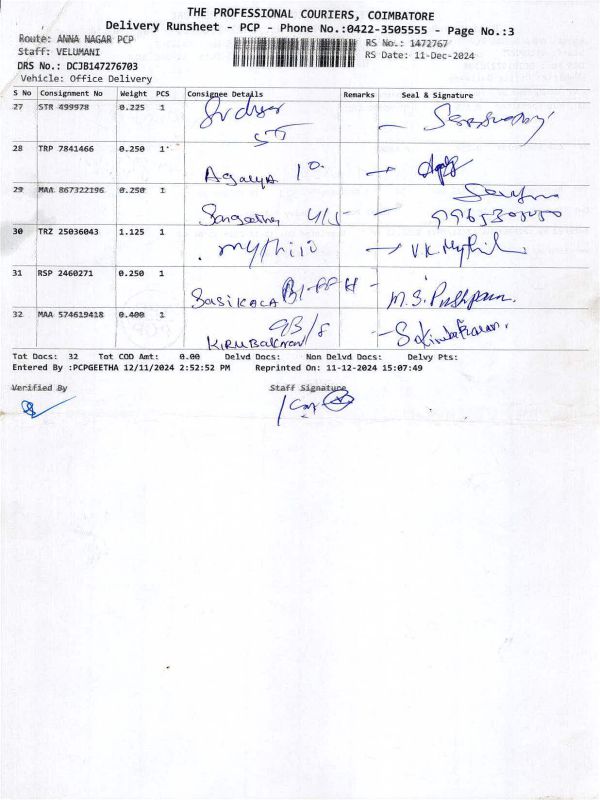 THE PROFESSIONAL COURIERS, COIMBATORE
Delivery Runsheet - PCP - Phone No.:0422-3505555 - Page No.:3
Route: ANNA NAGAR PCP RS No.: 1472767
Staff: VELUMANI RS Date: 11-Dec-2024
DRS No.: DCJB147276703
Vehicle: Office Delivery
S No Consignment No Weight PCS Consignee Details Remarks Seal & Signature
27 STR 499978 0.225 1
28 TRP 7841466 0.250 1
Agalya
29 MAA 867322196 0.250 1
Sangeetha 4/5
30 TRZ 25036043 1.125 1 mythili V.K. Mythili
31 RSP 2460271 0.250 1
SASIKALA M.S. Pushpam.
32 MAA 574619418 0.400 1 9B/8
KIRUBAKARAN
Tot Docs: 32 Tot COD Amt: 0.00 Delvd Docs: Non Delvd Docs: Delvy Pts:
Entered By :PCPGEETHA 12/11/2024 2:52:52 PM Reprinted On: 11-12-2024 15:07:49
Verified By Staff Signature